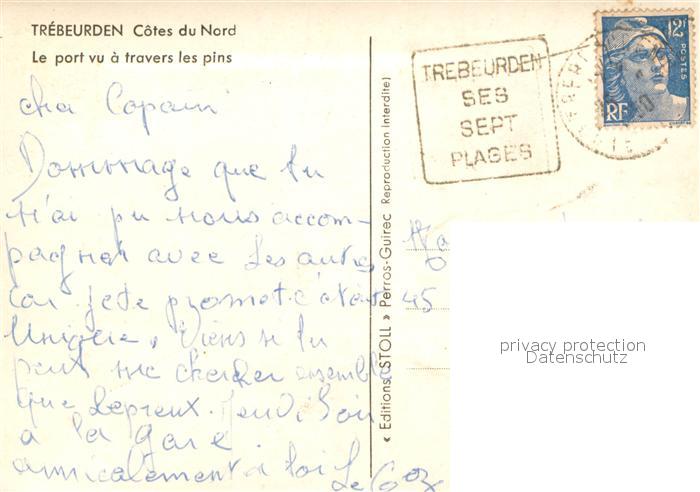 TRÉBEURDEN Côtes du Nord
Le port vu à travers les pins
cher Copain
Dommage que tu
n'ai pu nous accom-
pagner avec les autres
car je te promet c'était
Unique. Viens si tu
peux me chercher ensemble
que Lepreux. Jeudi Soir
à la gare.
amicalement à toi Le
« Editions STOLL » Perros-Guirec Reproduction Interdite)
TREBEURDEN
SES
SEPT
PLAGES
12F
POSTES
RF
45
privacy protection
Datenschutz